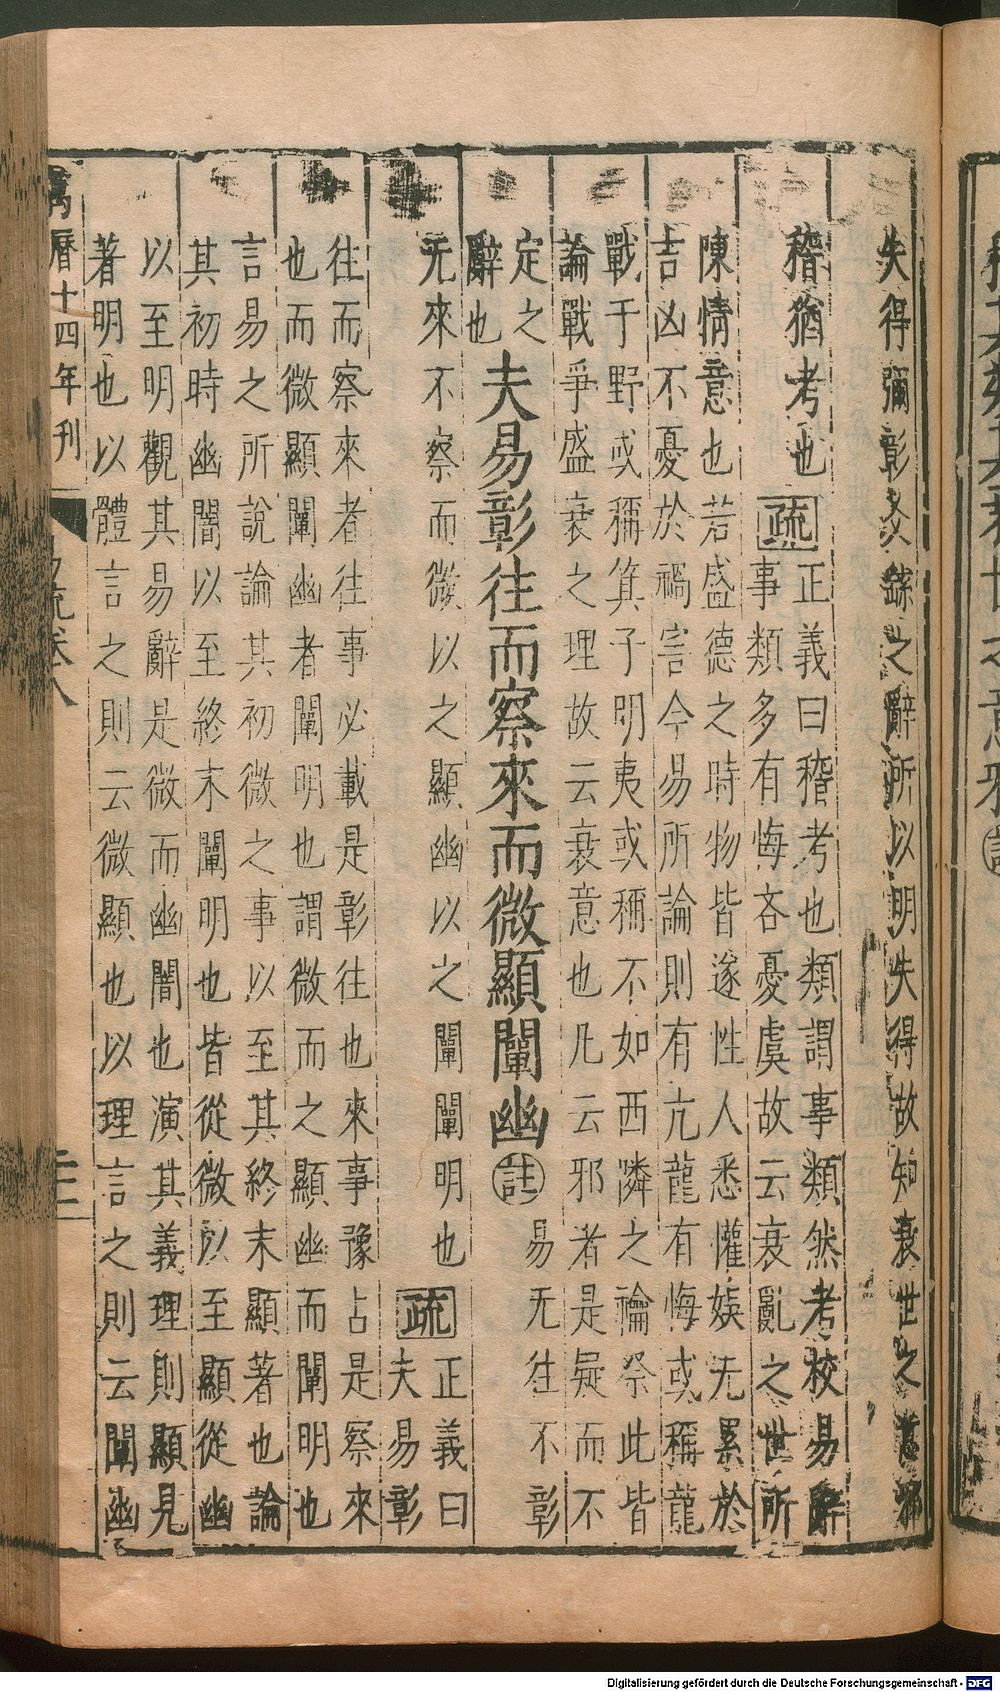 失得彌彰爻繇之辭所以明失得故知衰世之意邪
稽猶考也疏正義曰稽考也類謂事類然考校易辭
事類多有悔吝憂虞故云衰亂之世所
陳情意也若盛德之時物皆遂性人悉懽娛无累於
吉凶不憂於禍害今易所論則有亢龍有悔或稱龍
戰于野或稱箕子明夷或稱不如西隣之禴祭此皆
論戰爭盛衰之理故云衰意也凡云邪者是疑而不
定之
辭也
夫易彰往而察來而微顯闡幽註
易无往不彰
无來不察而微以之顯幽以之闡闡明也疏正義曰
夫易彰
往而察來者往事必載是彰往也來事豫占是察來
也而微顯闡幽者闡明也謂微而之顯幽而闡明也
言易之所說論其初微之事以至其終末顯著也論
其初時幽闇以至終末闡明也皆從微以至顯從幽
以至明觀其易辭是微而幽闇也演其義理則顯見
著明也以體言之則云微顯也以理言之則云闡幽
萬曆十四年刊
易疏卷八
Digitalisierung gefördert durch die Deutsche Forschungsgemeinschaft - DFG